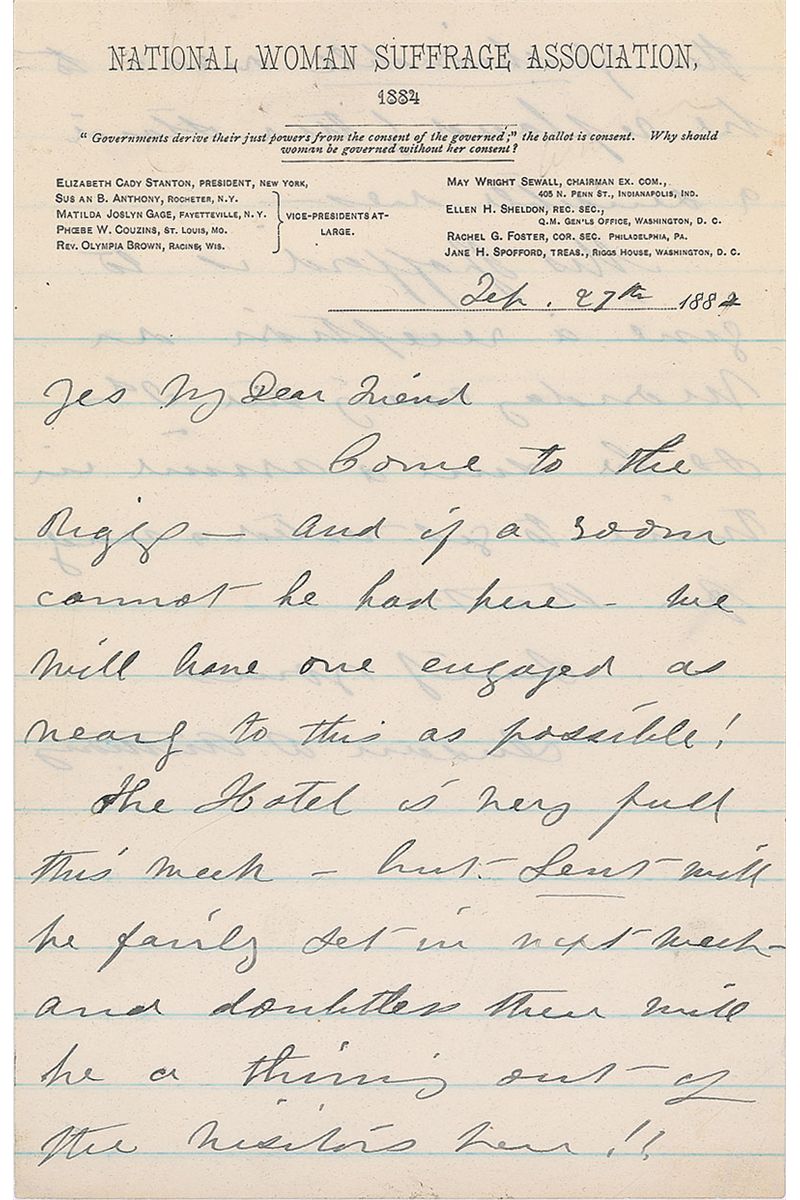 NATIONAL WOMAN SUFFRAGE ASSOCIATION,
1884
"Governments derive their just powers from the consent of the governed;" the ballot is consent. Why should
woman be governed without her consent?
ELIZABETH CADY STANTON, PRESIDENT, NEW YORK,
SUSAN B. ANTHONY, ROCHETER, N.Y.
MATILDA JOSLYN GAGE, FAYETTEVILLE, N. Y.
PHŒBE W. COUZINS, ST. LOUIS, MO.
REV. OLYMPIA BROWN, RACINE, WIS.
VICE-PRESIDENTS AT-
LARGE.
MAY WRIGHT SEWALL, CHAIRMAN EX. COM.,
405 N. PENN ST., INDIANAPOLIS, IND.
ELLEN H. SHELDON, REC. SEC.,
Q.M. GEN'LS OFFICE, WASHINGTON, D. C.
RACHEL G. FOSTER, COR. SEC. PHILADELPHIA, PA.
JANE H. SPOFFORD, TREAS., RIGGS HOUSE, WASHINGTON, D. C.
Feb. 27th 1884
Yes My Dear Friend
Come to the
Riggs — and if a room
cannot be had here — we
will have one engaged as
nearly to this as possible!
The Hotel is very full
this week — but — Lent will
be fairly set in next week —
and doubtless there will
be a thinning out of
the visitors here!!